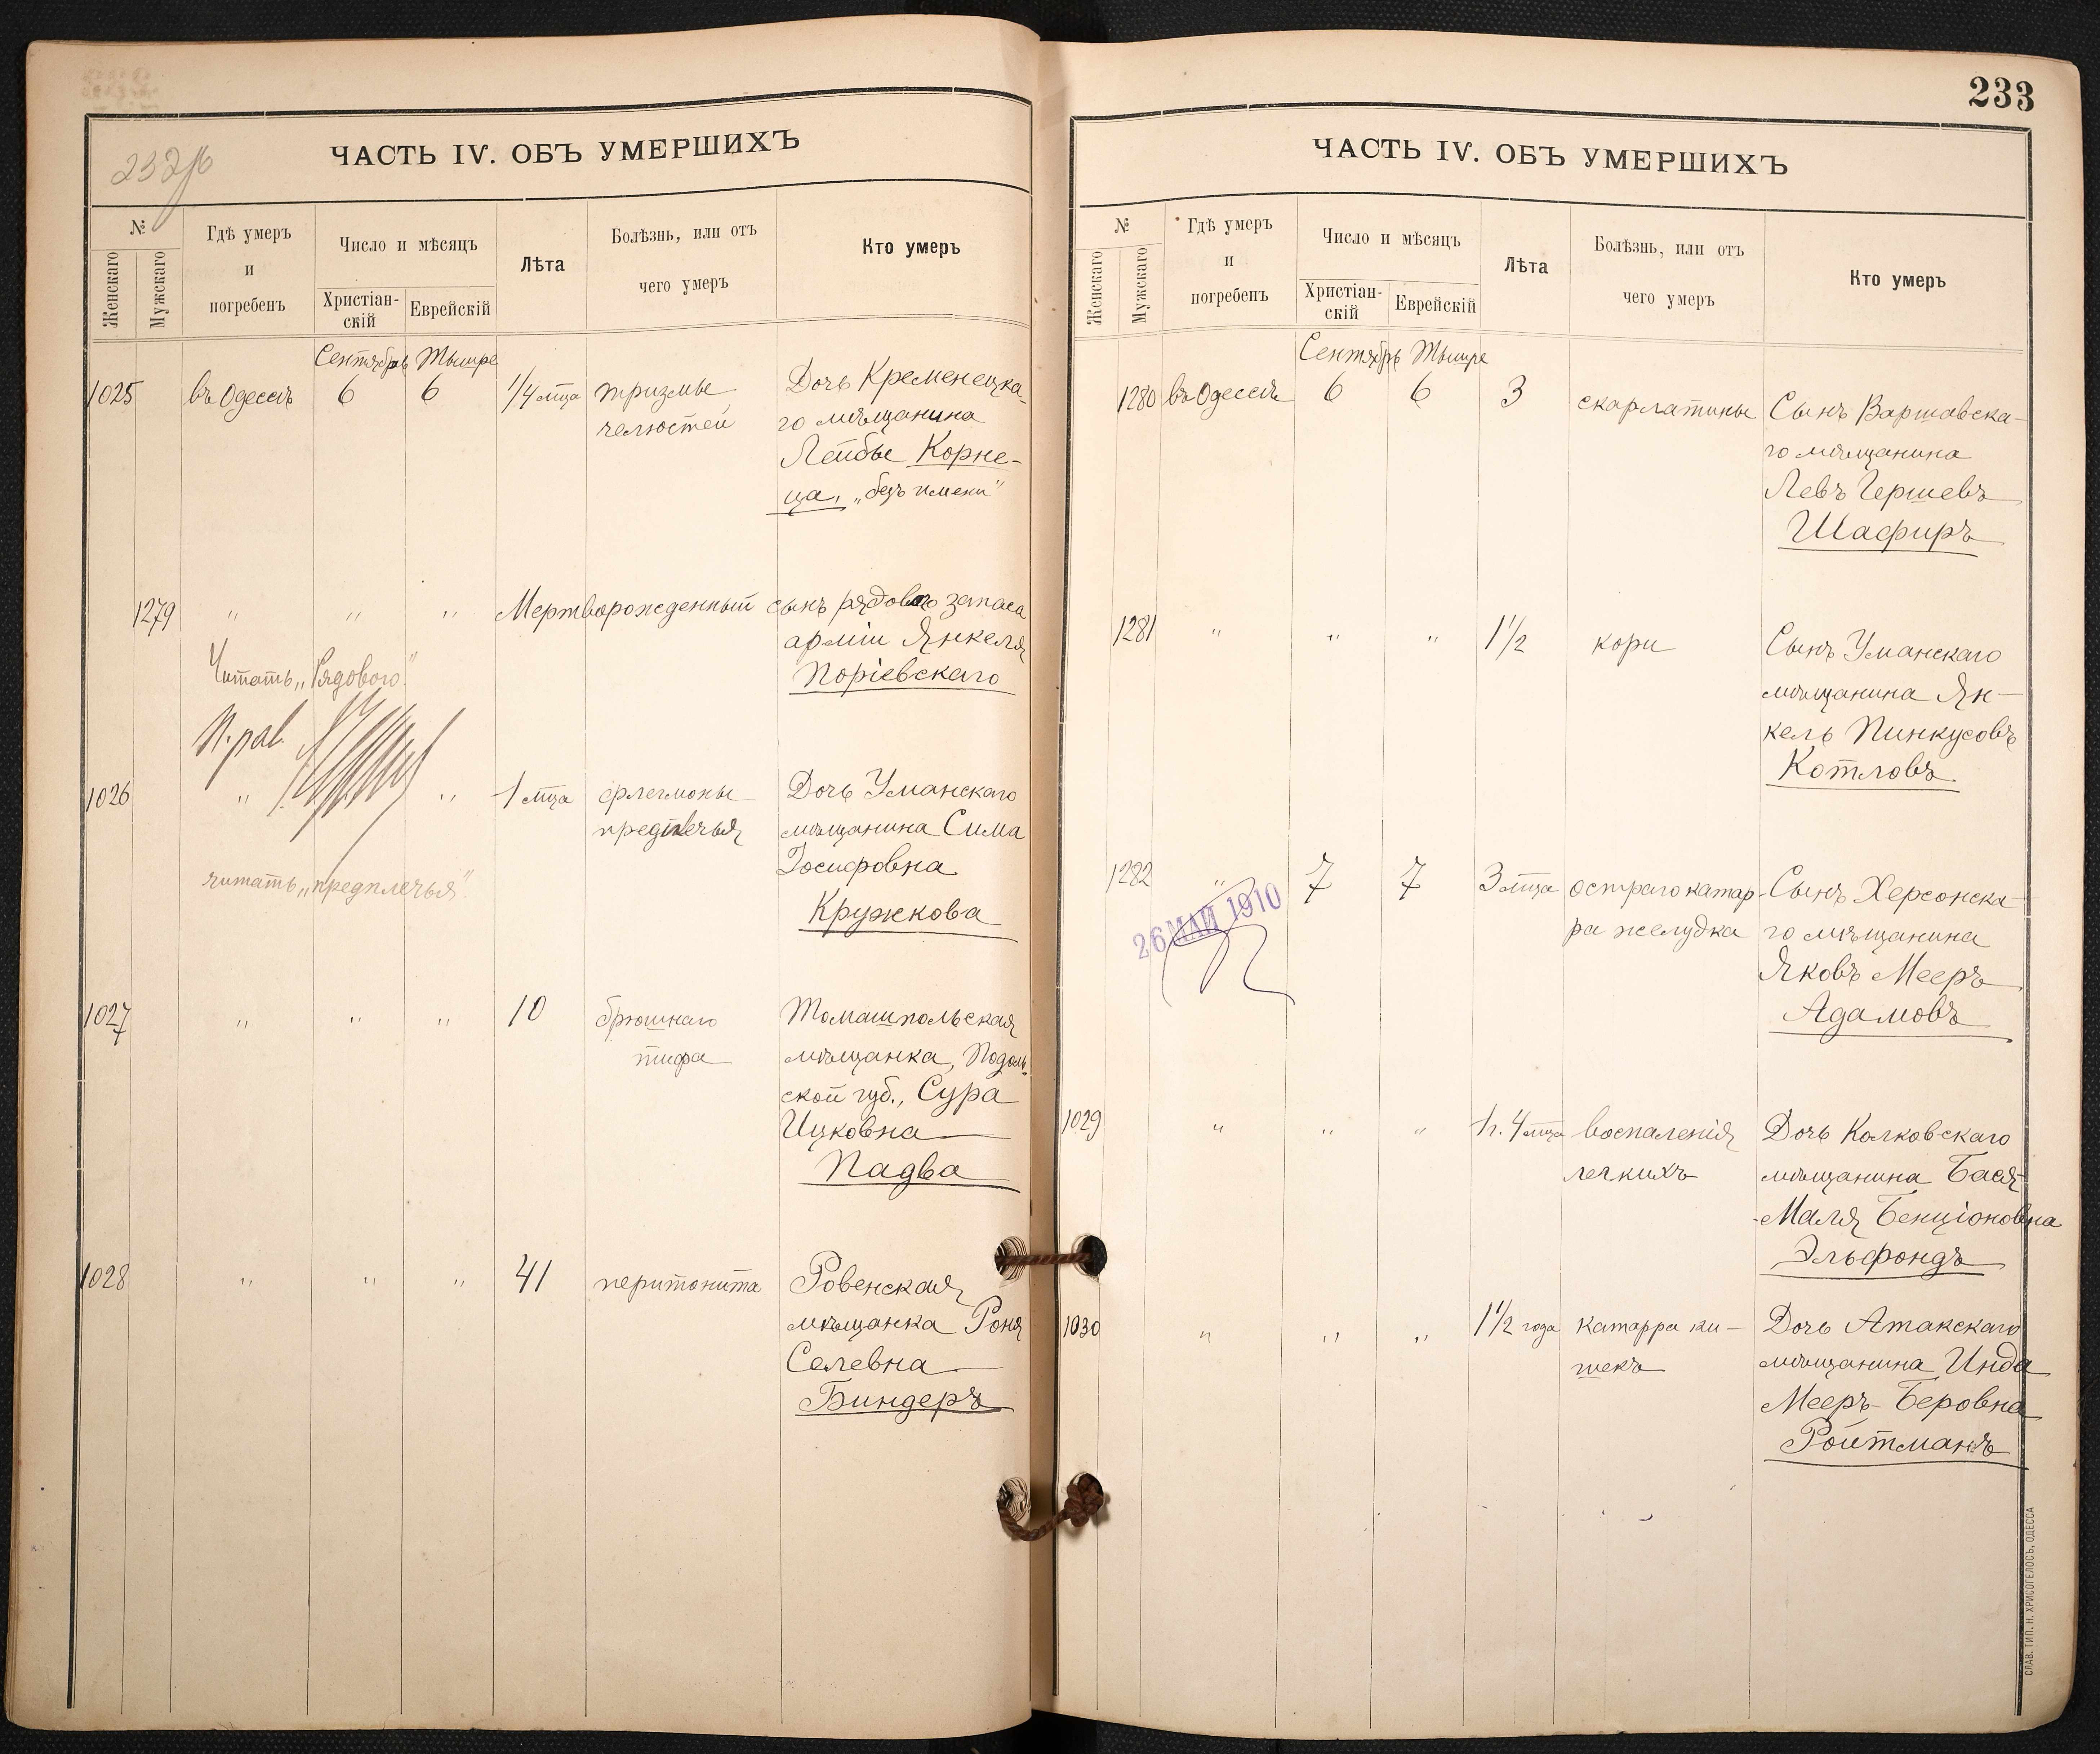 232об
ЧАСТЬ IV. ОБЪ УМЕРШИХЪ
№
Женскаго
Мужскаго
Гдѣ умеръ
и
погребенъ
Число и мѣсяцъ
Христіан-
скій
Еврейскій
Лѣта
Болѣзнь, или отъ
чего умеръ
Кто умеръ
Сентябрь Тышре
1025 въ Одессѣ 6 6 1/4 мца тризмы Дочь Кременецка-
челюстей го мѣщанина
Лейбы Корне-
ца, „безъ имени"
1279 " " " Мертворожденный сынъ рядового запаса
арміи Янкеля
Поріевскаго
Читать „Рядового".
1026 " " 1 мца флегмоны Дочь Уманскаго
предплечья мѣщанина Сима
Іосифовна
Кружкова
читать „предплечья".
1027 " " " 10 брюшнаго Томашпольская
тифа мѣщанка, Подоль-
ской губ., Сура
Ицковна
Падва
1028 " " " 41 перитонита Ровенская
мѣщанка Роня
Селевна
Биндеръ
233
ЧАСТЬ IV. ОБЪ УМЕРШИХЪ
№
Женскаго
Мужскаго
Гдѣ умеръ
и
погребенъ
Число и мѣсяцъ
Христіан-
скій
Еврейскій
Лѣта
Болѣзнь, или отъ
чего умеръ
Кто умеръ
Сентябрь Тышре
1280 въ Одессѣ 6 6 3 скарлатины Сынъ Варшавска-
го мѣщанина
Левъ Гершевъ
Шафиръ
1281 " " " 1 1/2 кори Сынъ Уманскаго
мѣщанина Ян-
кель Пинкусовъ
Котловъ
1282 " 7 7 3 мца остраго катар- Сынъ Херсонска-
ра желудка го мѣщанина
Яковъ Мееръ
Адамовъ
26 МАЙ 1910
1029 " " " 1 г. 4 мца воспаленія Дочь Колковскаго
легкихъ мѣщанина Бася-
-Маля Бенціоновна
Эльфондъ
1030 " " " 1 1/2 года катарра ки- Дочь Атакскаго
шекъ мѣщанина Инда
Мееръ-Беровна
Ройтманъ
СЛАВ. ТИП. Н. ХРИСОГЕЛОСЪ, ОДЕССА